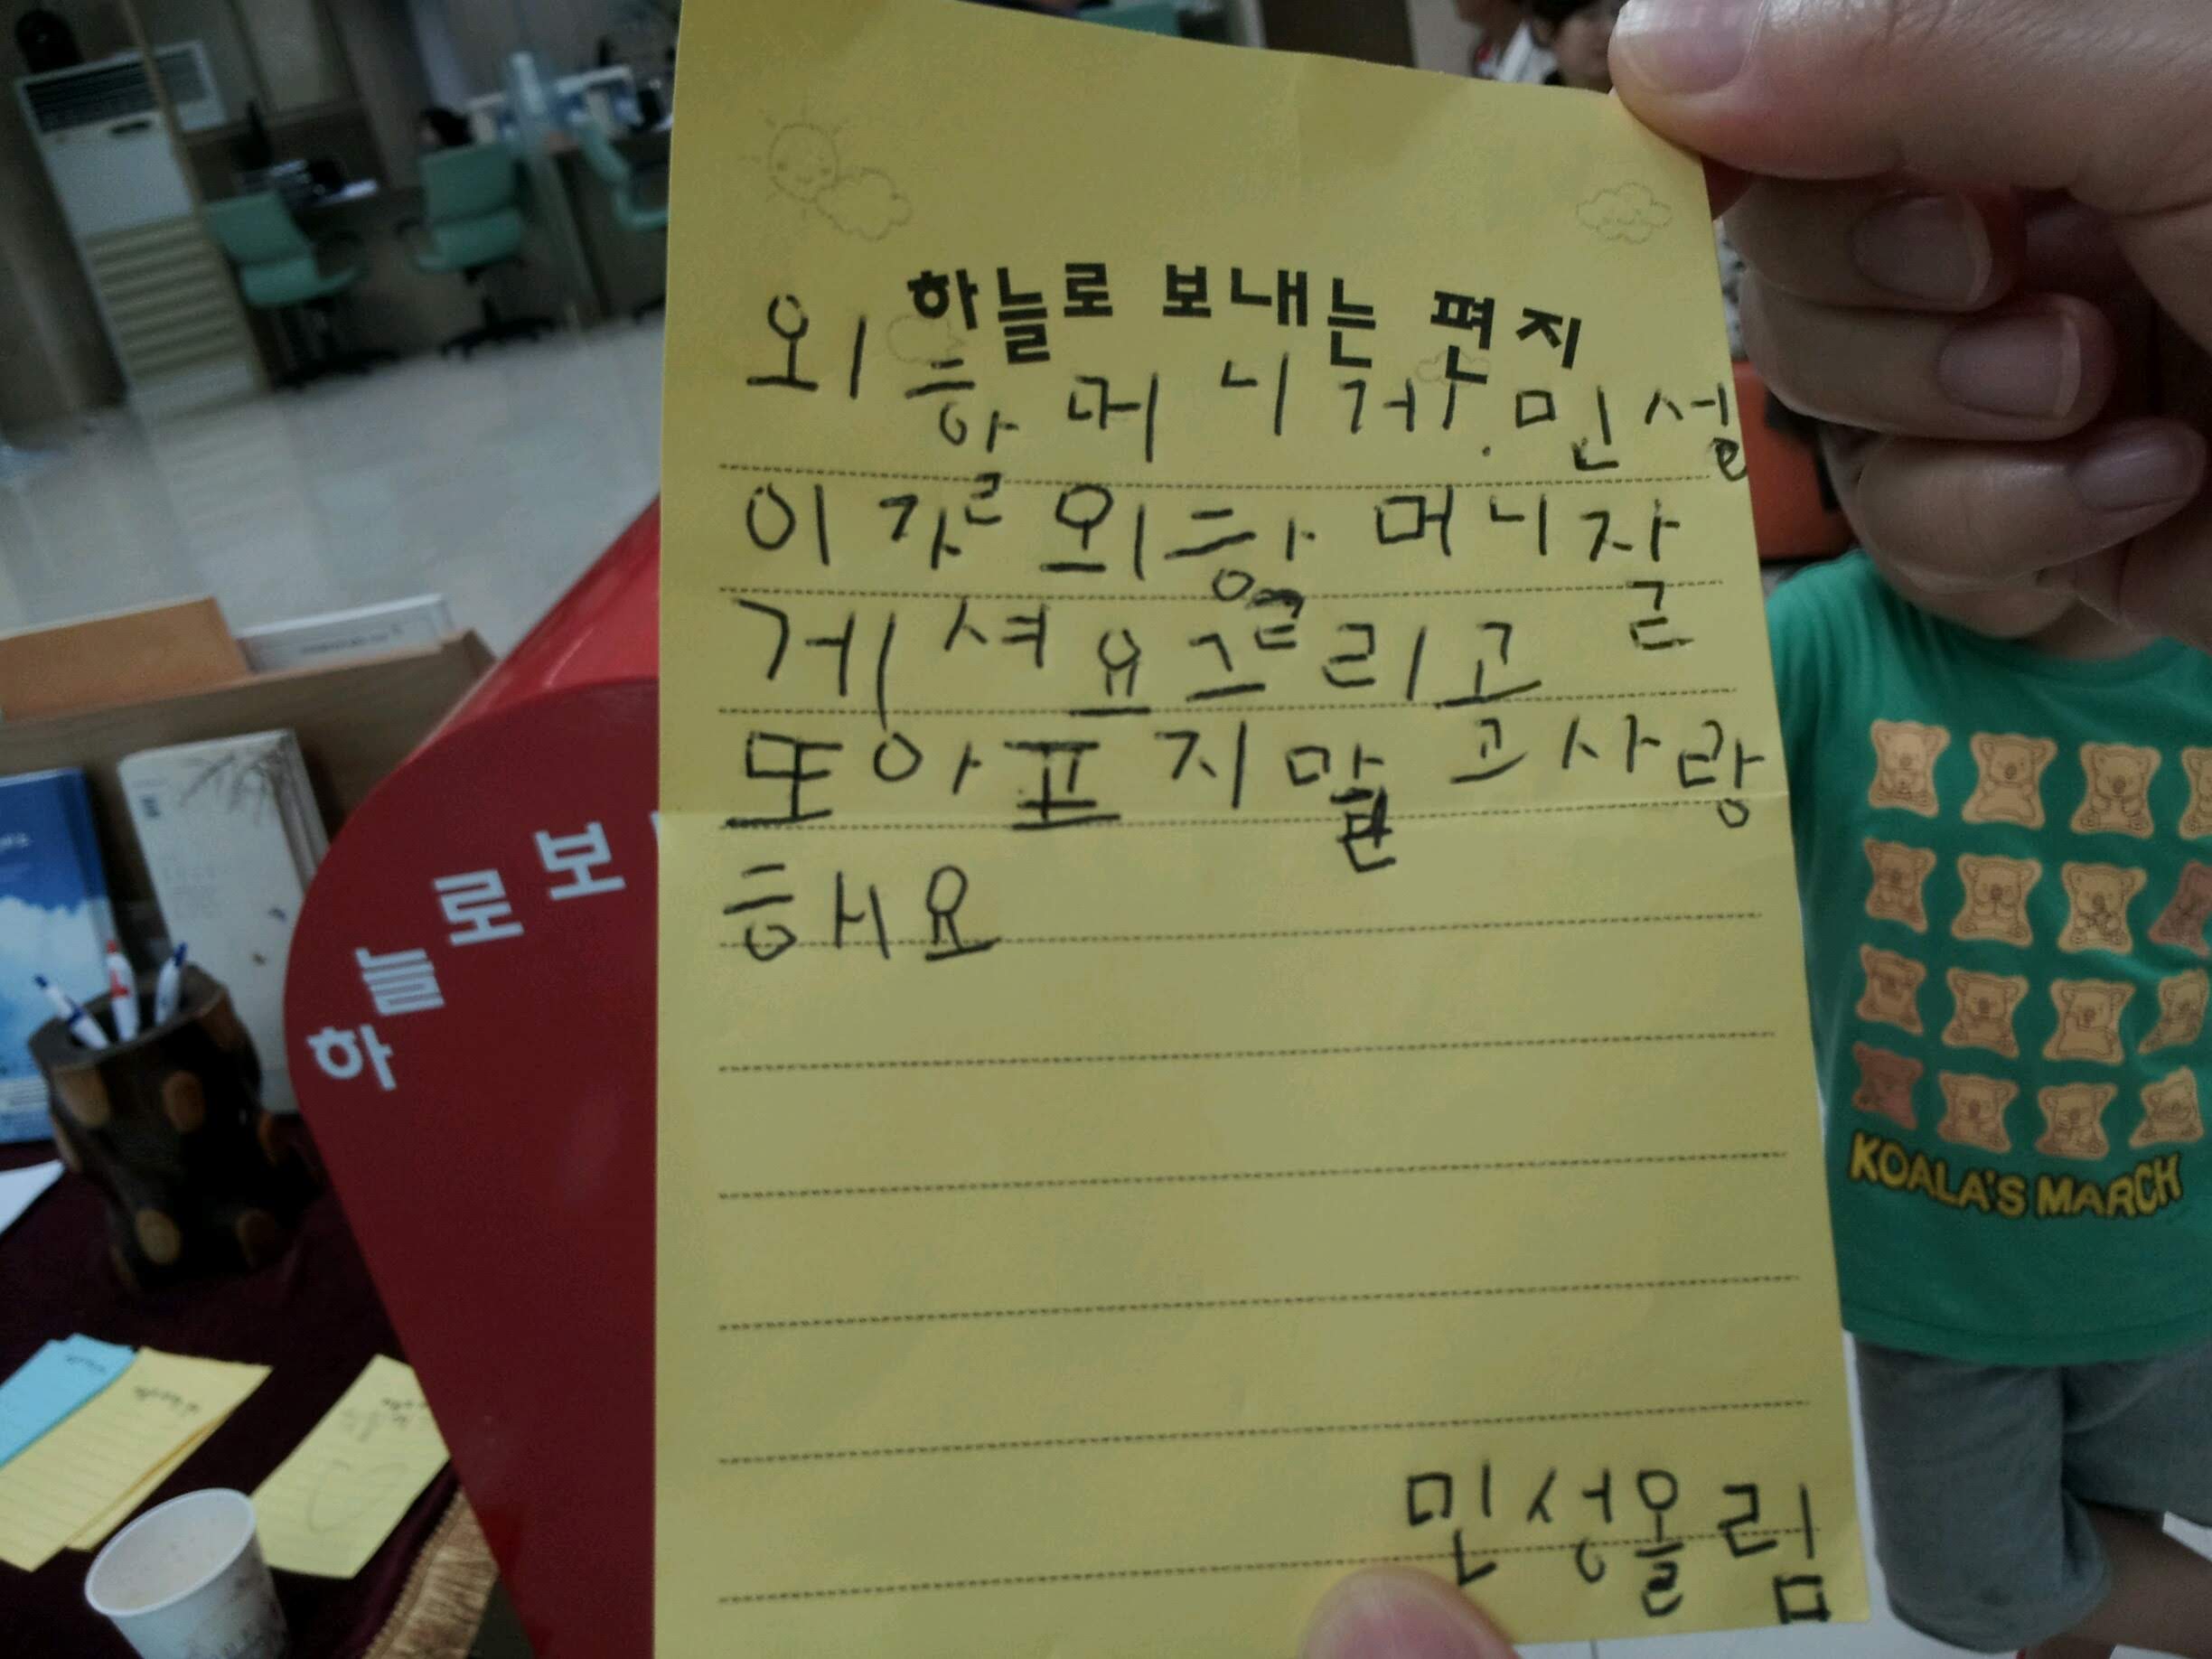 하늘로 보내는 편지
외하머니게. 민성
이갈외항머니잘
게셔요글리고
또아표지말고사랑
해요
민성올림
하늘로보
KOALA'S MARCH